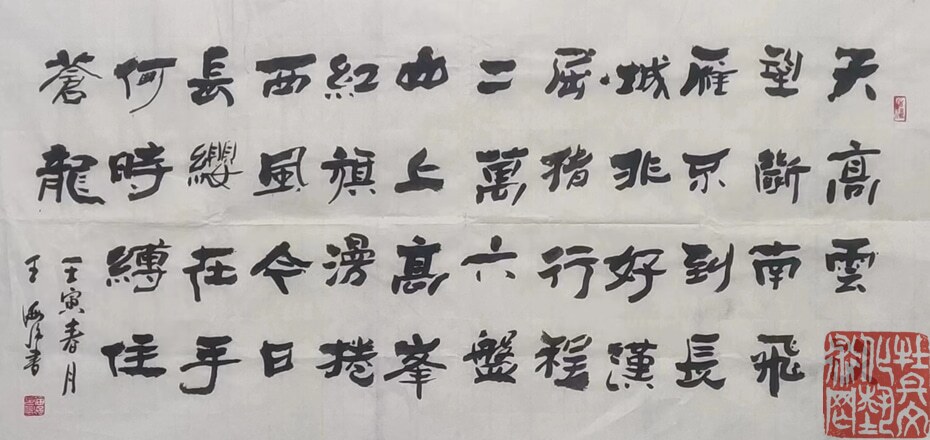 天高雲
望斷南飛
雁不到長
城非好漢
屈指行程
二萬六盤
山上高峯
紅旗漫捲
西風今日
長纓在手
何時縛住
蒼龍
壬寅春月
王海書